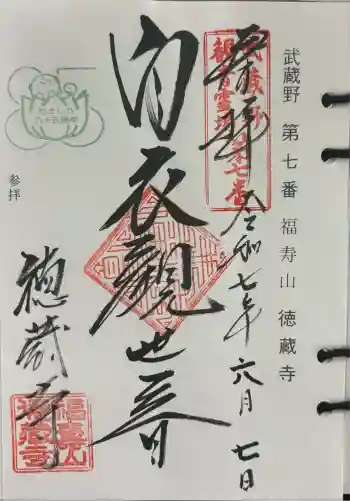 武蔵野 第七番 福寿山 徳蔵寺
奉拝 令和七年六月七日
武蔵野
観音霊場第七番
白衣観世音
徳蔵寺
福寿山
徳蔵寺
参拝